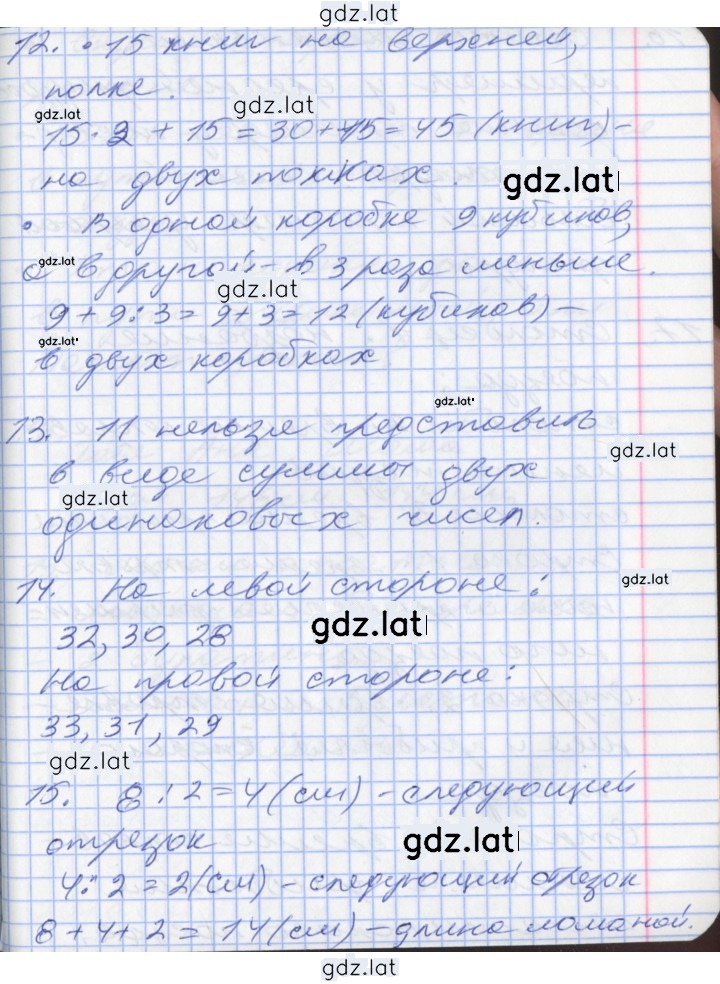 gdz.lat
12. • 15 книг на верхней
полке.
gdz.lat
gdz.lat
15 · 2 + 15 = 30 + 15 = 45 (книг) -
на двух полках.
gdz.lat
• В одной коробке 9 кубиков,
а в другой - в 3 раза меньше.
gdz.lat
gdz.lat
9 + 9 : 3 = 9 + 3 = 12 (кубиков) -
gdz.lat
в двух коробках
gdz.lat
13. 11 нельзя представить
gdz.lat
в виде суммы двух
gdz.lat
одинаковых чисел.
14. На левой стороне:
gdz.lat
32, 30, 28
gdz.lat
На правой стороне:
33, 31, 29
gdz.lat
15. 8 : 2 = 4 (см) - следующий
отрезок
gdz.lat
4 : 2 = 2 (см) - следующий отрезок
8 + 4 + 2 = 14 (см) - длина ломаной.
gdz.lat